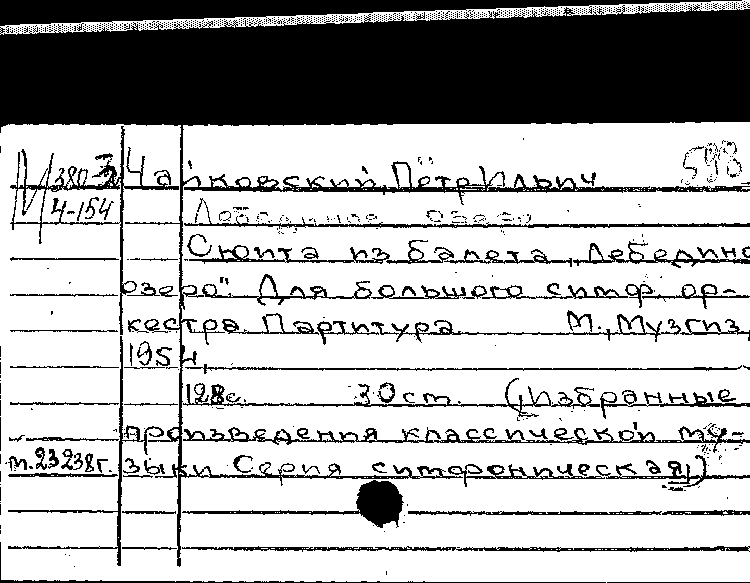 И 380-3 Чайковский, Пётр Ильич 598
4-154 Лебединое озеро
Сюита из балета „Лебедино
озеро". Для большого симф. ор-
кестра. Партитура М., Музгиз,
1954,
128с. 30см. (Избранные
произведения классической му-
т.23238г. зыки Серия симфоническая)